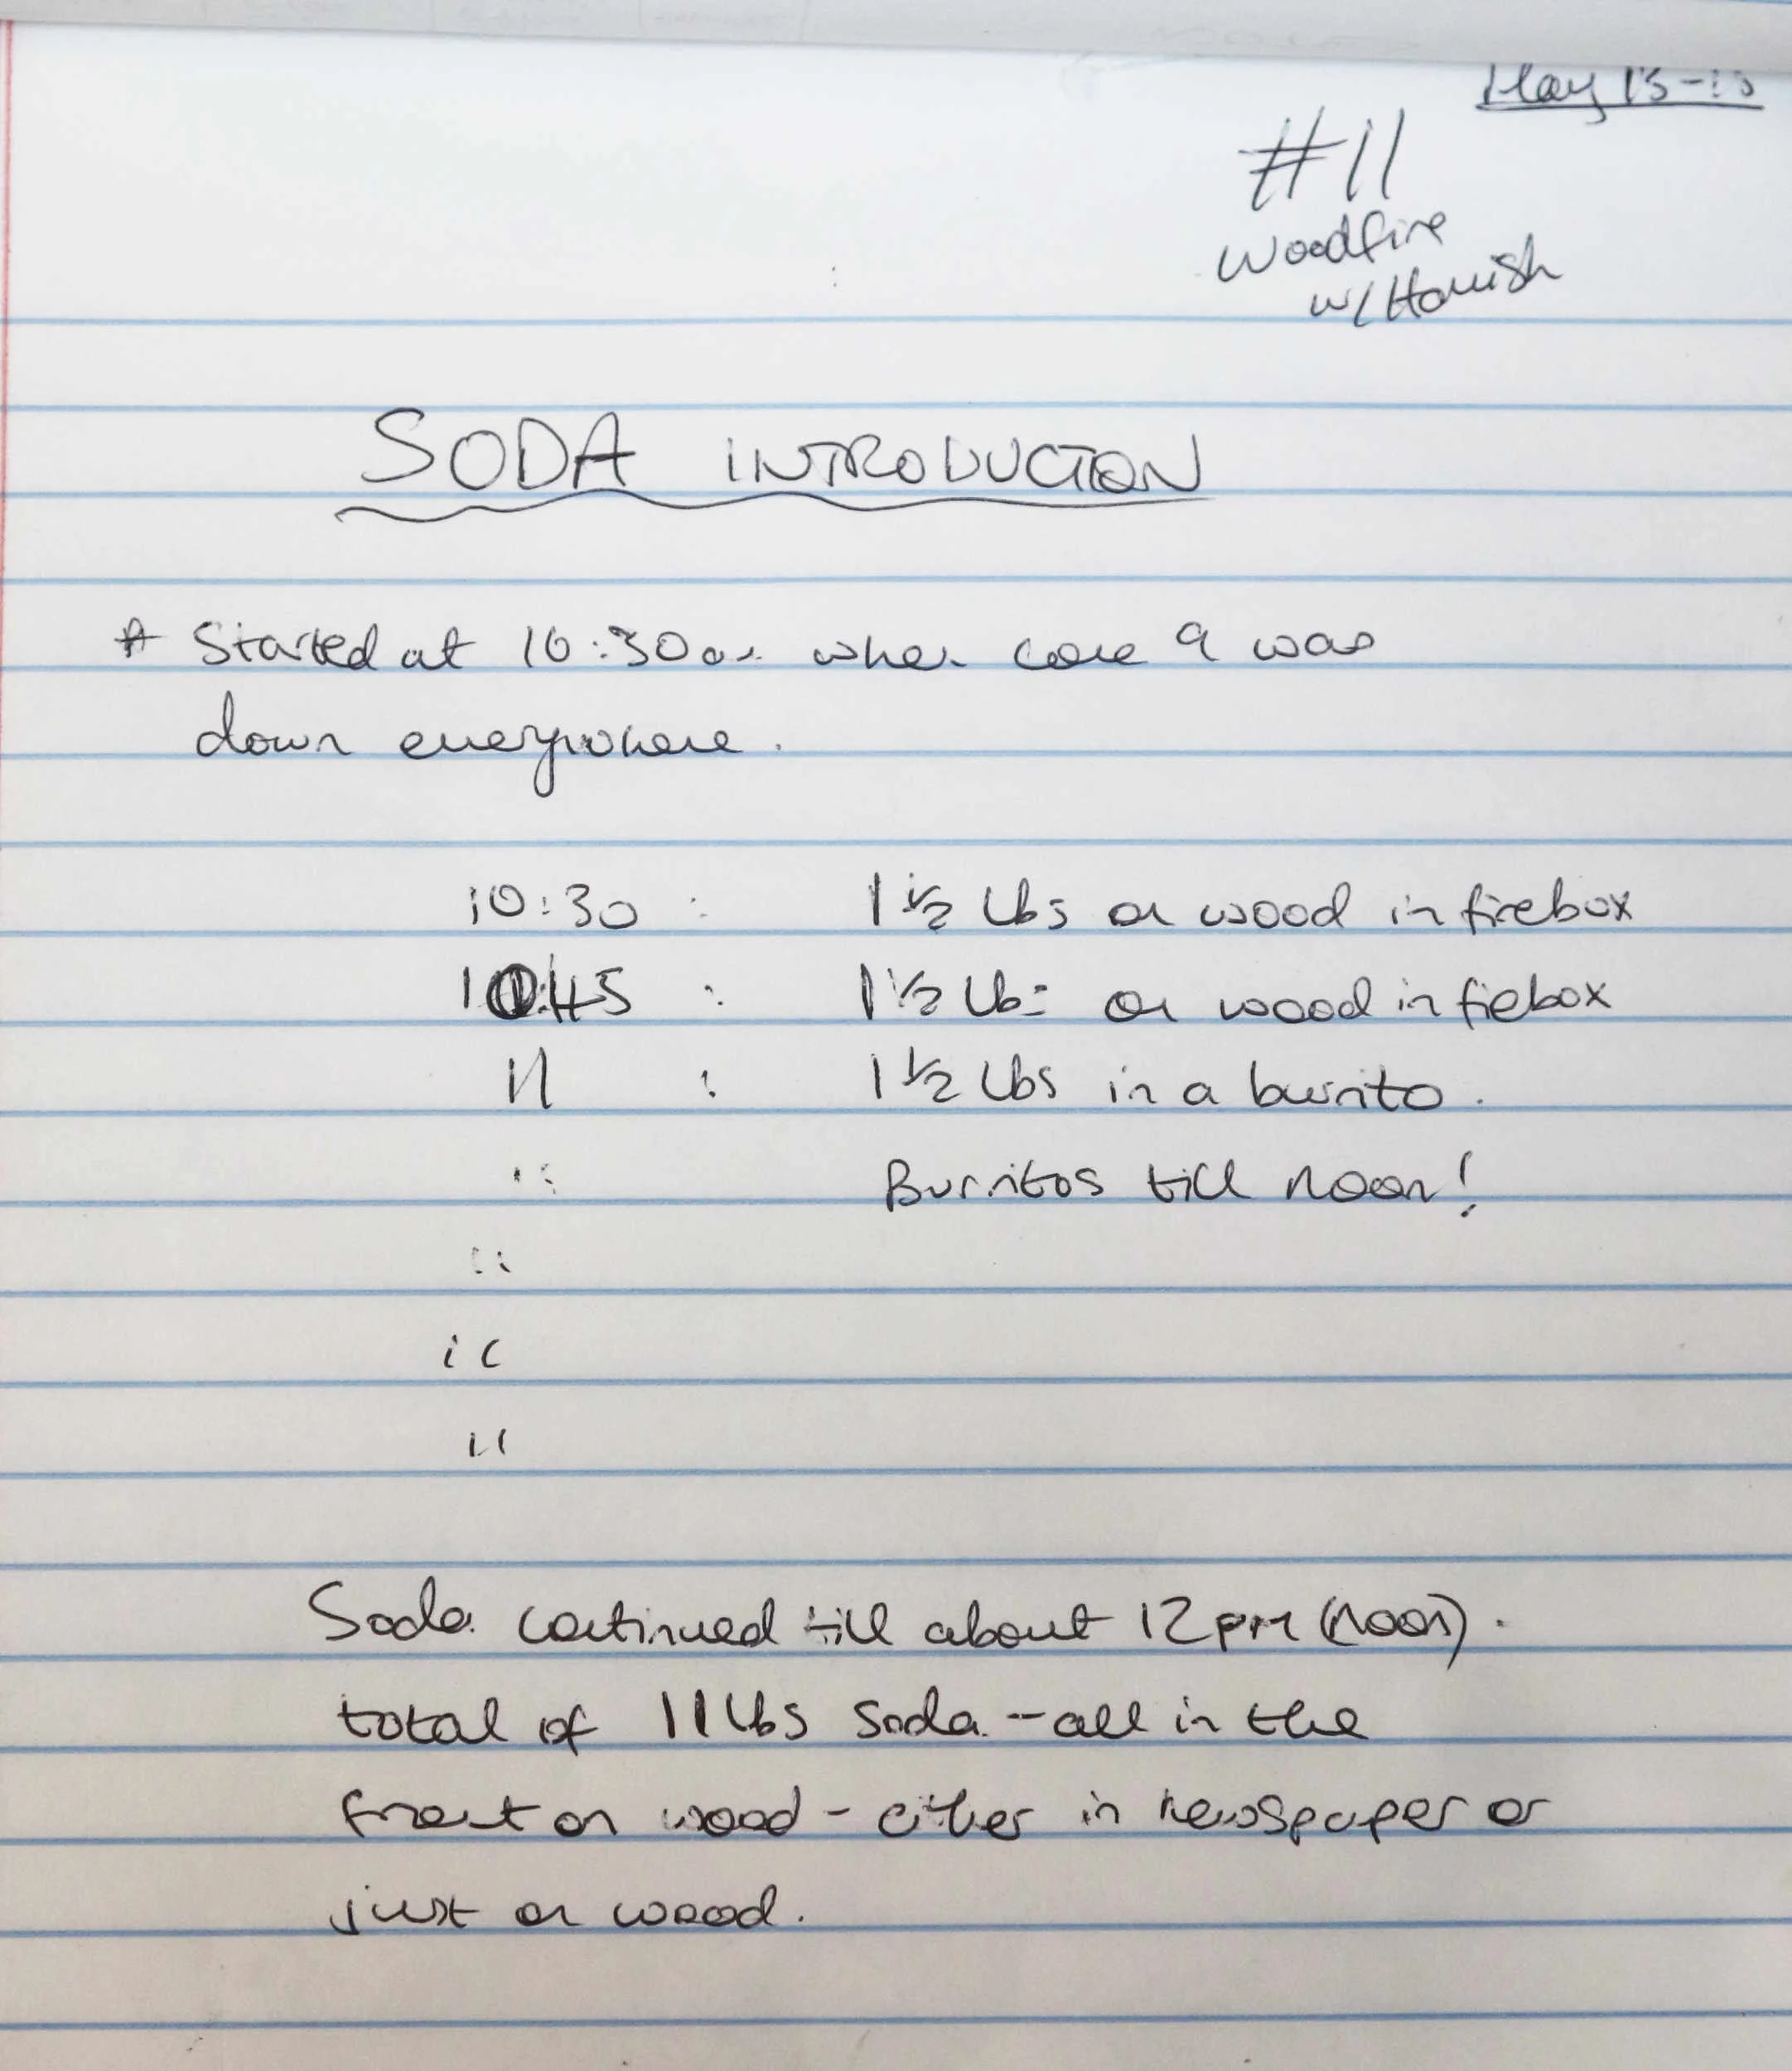 May 13-15
#11
Woodfire
w/ Hamish
SODA INTRODUCTION
* Started at 10:30am when cone 9 was
down everywhere.
10:30 : 1 1/2 Lbs on wood in firebox
10:45 : 1 1/2 Lbs on wood in firebox
11 : 1 1/2 Lbs in a burrito.
" Burritos till noon!
"
"
"
Soda continued till about 12pm (noon).
total of 11 Lbs soda - all in the
front on wood - either in newspaper or
just on wood.